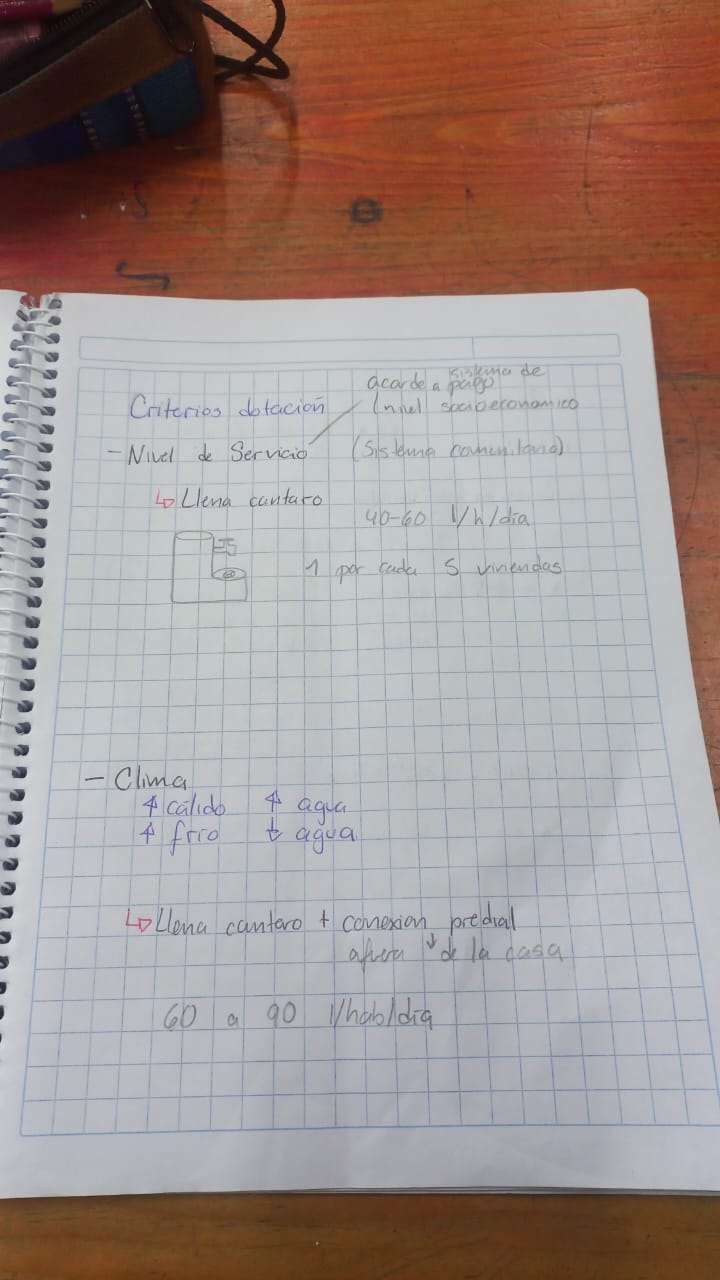 Criterios dotación
acorde a sistema de pago
(nivel socioeconomico
- Nivel de Servicio (Sistema comunitario)
↳ Llena cantaro
40-60 l/h/día
1 por cada 5 viviendas
- Clima
↑ cálido ↑ agua
↑ frío ↓ agua
↳ Llena cantaro + conexion predial
afuera ↓ de la casa
60 a 90 l/hab/día